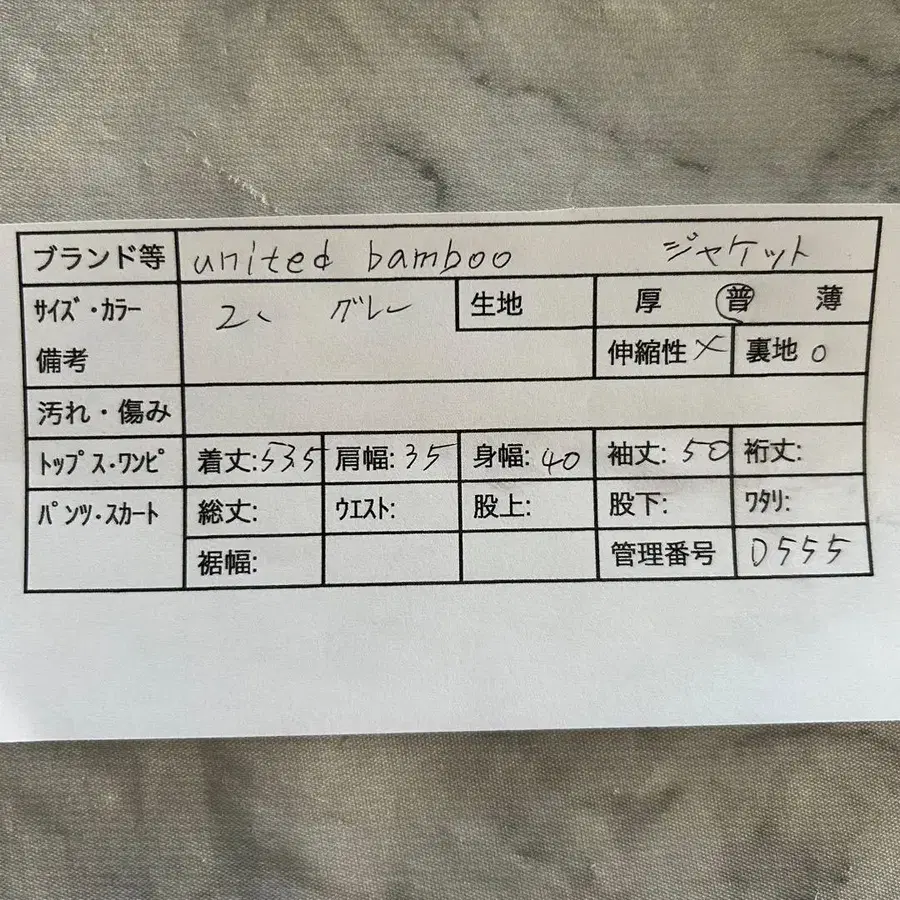 ブランド等 united bamboo ジャケット
サイズ・カラー 2、 グレー 生地 厚 普 薄
備考 伸縮性 × 裏地 ○
汚れ・傷み
トップス・ワンピ 着丈:53.5 肩幅:35 身幅:40 袖丈:50 裄丈:
パンツ・スカート 総丈: ウエスト: 股上: 股下: ワタリ:
裾幅: 管理番号 0555